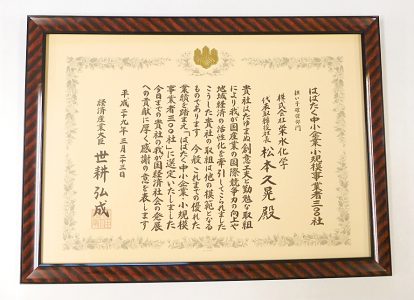 はばたく中小企業・小規模事業者三〇〇社
担い手確保部門
株式会社栄水化学
代表取締役社長 松本久晃 殿
貴社はたゆまぬ創意工夫と勤勉な取組
により我が国産業の国際競争力の向上や
地域経済の活性化を牽引してこられました
こうした貴社の取組は他の模範となる
ものであります 今般これまでの優れた
業績を踏まえ「はばたく中小企業・小規模
事業者三〇〇社」に選定いたしました
今日までの貴社の我が国経済社会の発展
への貢献に厚く感謝の意を表します
平成二十九年三月二十三日
経済産業大臣 世耕弘成